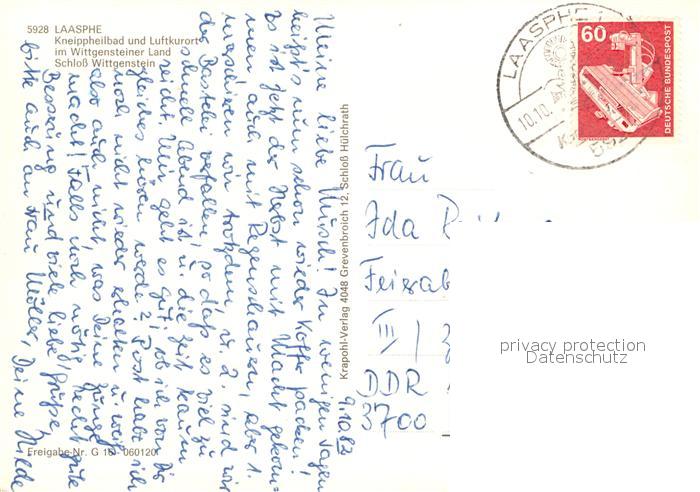 5928 LAASPHE
Kneippheilbad und Luftkurort
im Wittgensteiner Land
Schloß Wittgenstein
LAASPHE
10.10.
60
DEUTSCHE BUNDESPOST
9.10.82
Meine liebe Mursch! In wenigen Tagen
heißt's nun schon wieder Koffer packen!
Es ist jetzt der Herbst mit Macht gekom-
men auch mit Regenschauern, aber 1.
marschieren wir trotzdem u. 2. sind wir
der Bastelei verfallen, so daß es viel zu
schnell Abend ist u. die Zeit kaum
reicht. Mir geht es gut; ob ich von Dir
gleiches hören werde? Post habe ich
noch nicht wieder erhalten u. weiß ich
also auch nicht, was Deine Lunge
macht! Falls noch nötig, recht gute
Besserung und viele liebe Grüße,
bitte auch an Frau Möller, Deine Hilde
Krapohl-Verlag 4048 Grevenbroich 12, Schloß Hülchrath
Frau
Ida
Feierab
III /
DDR
3700
Freigabe-Nr. G 18 060120
privacy protection
Datenschutz